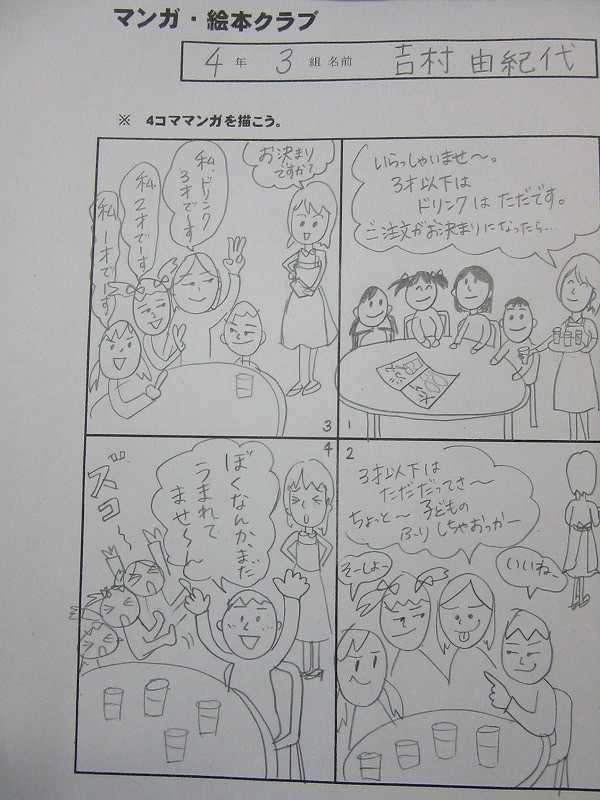 マンガ・絵本クラブ
4年 3組 名前 吉村 由紀代
※ 4コママンガを描こう。
いらっしゃいませ〜。
3才以下は
ドリンクはただです。
ご注文がお決まりになったら…
1
2
3才以下は
ただだってさ〜
ちょっと〜子どもの
ふりしちゃおっかー
そーしよー
いいねー
お決まり
ですか?
私、ドリンク
3才です
私2才でーす
私1才でーす
3
4
ぼくなんか、まだ
うまれて
ませ〜ん
ズコ〜